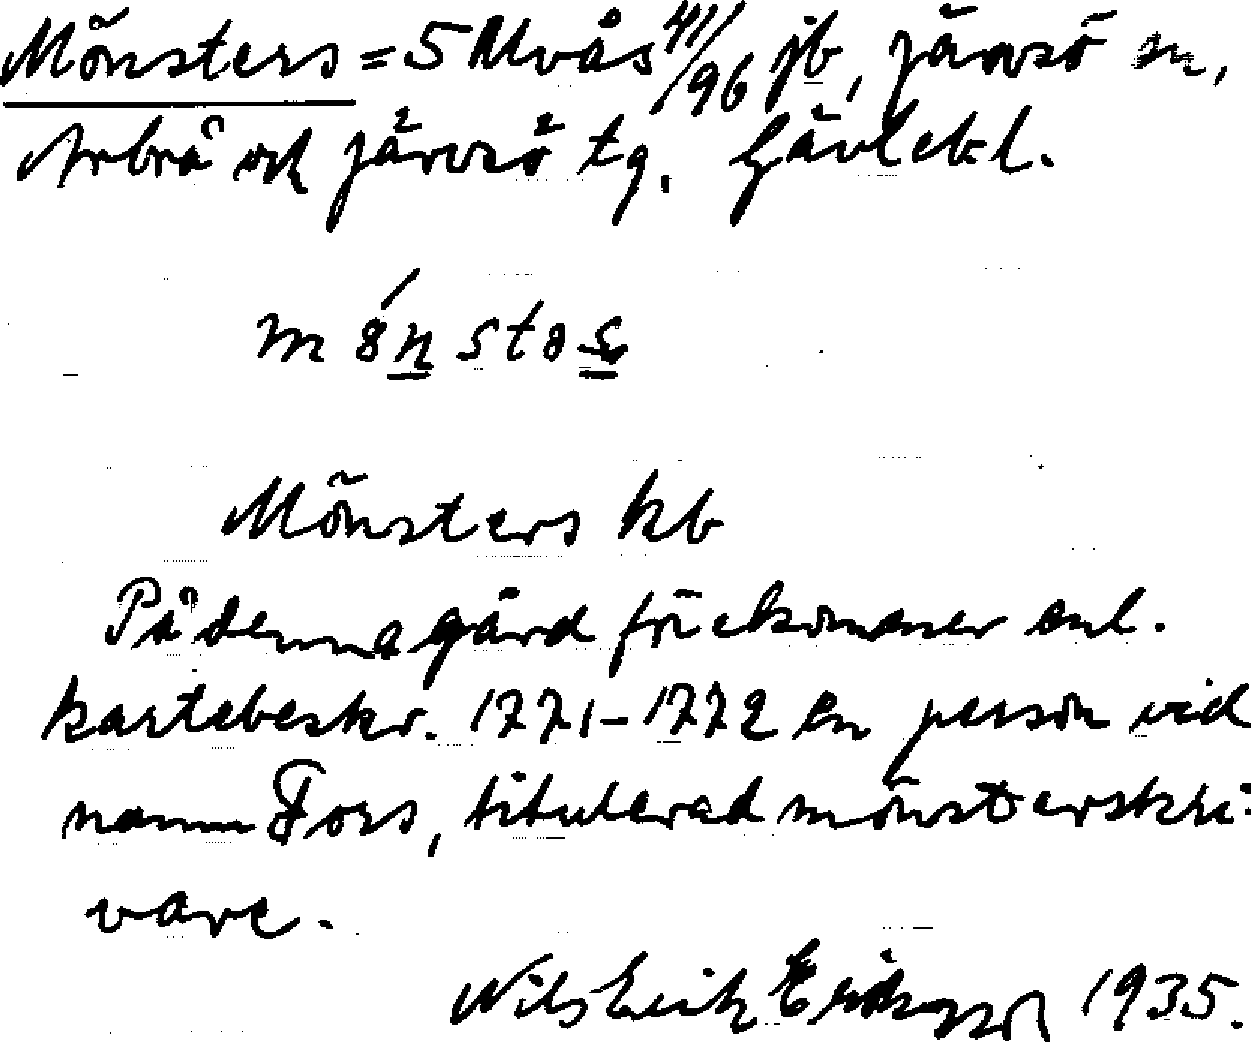 Mönsters = 5 Ulvås 41/96 jb, Järvsö sn,
Arbrå och Järvsö tg. Gävlebl.
Mönsters kb
På denna gård förekommer enl.
kartebeskr. 1771-1772 en person vid
namn Fors, titulerad mönsterskri-
vare.
Nils Erik Eriksson 1935.